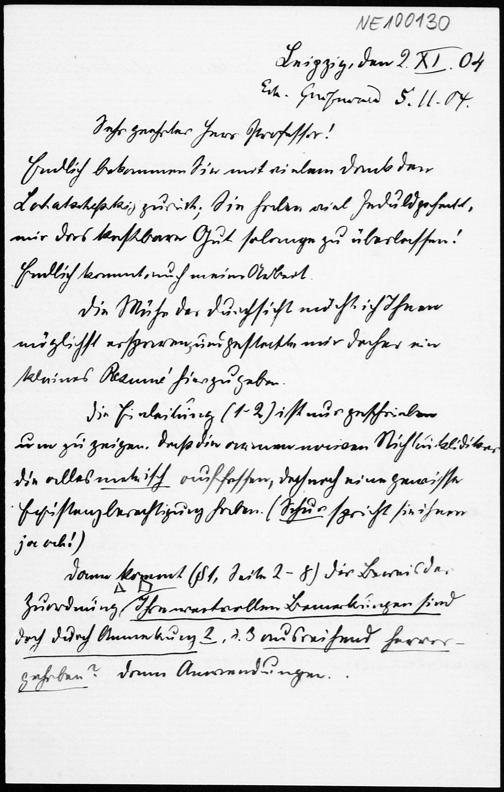 NE100130
Leipzig, den 2. XI. 04
5. 11. 04.
Sehr geehrter Herr Professor!
Endlich bekommen Sie mit vielem Dank den
Lobatschefskij zurück; Sie haben viel Geduld gehabt,
mir das kostbare Gut solange zu überlassen!
Endlich kommt auch meine Arbeit.
Die Mühe der Durchsicht möchte ich Ihnen
möglichst ersparen, und gestatte mir daher ein
kleines Resumé hier zu geben.
Die Einleitung (1-2) ist nur geschrieben
um zu zeigen, dass die armen naiven Nichteuklidiker
die alles metrisch auffassen, doch noch eine gewisse
Existenzberechtigung haben. (Schur spricht sie ihnen
ja ab!)
Dann kommt (§1, Seite 2-8) der Beweis der
Zuordnung. Ihre wertvollen Bemerkungen sind
doch durch Anmerkung 2, u. 3 ausreichend hervor-
gehoben? Dann Anwendungen.